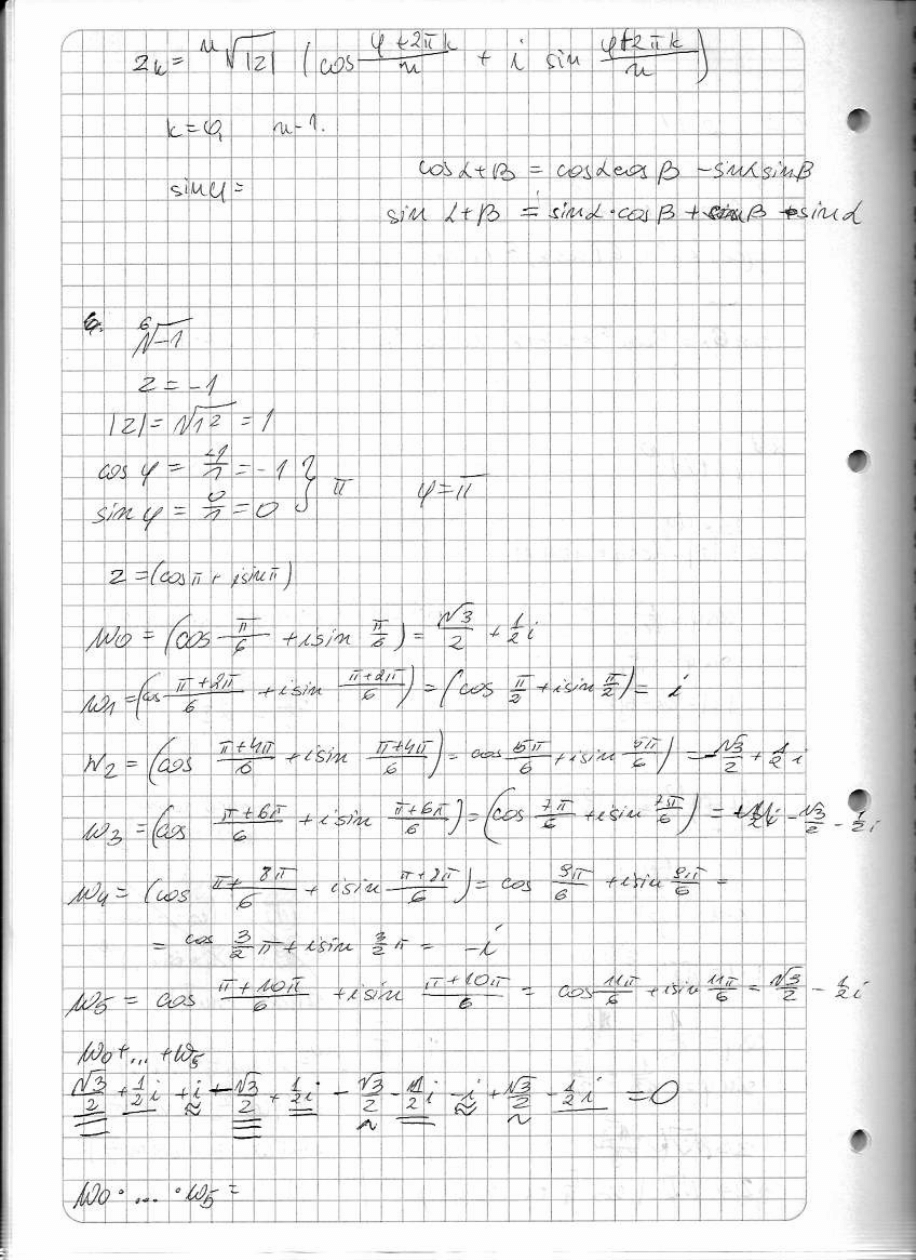 z_k = ⁿ√|z| (cos (φ+2πk)/n + i sin (φ+2πk)/n)
k=0, n-1.
cos α+β = cosα cos β - sinα sinβ
sin φ =
sin α+β = sinα·cosβ + sinβ sinα
⁶√-1
z = -1
|z| = √1² = 1
cos φ = -1/1 = -1 }
sin φ = 0/1 = 0 } π φ = π
z = (cos π + i sin π)
w0 = (cos π/6 + i sin π/6) = √3/2 + 1/2 i
w1 = (cos (π+2π)/6 + i sin (π+2π)/6) = (cos π/2 + i sin π/2) = i
w2 = (cos (π+4π)/6 + i sin (π+4π)/6) = cos 5π/6 + i sin 5π/6) = -√3/2 + 1/2 i
w3 = (cos (π+6π)/6 + i sin (π+6π)/6) = (cos 7π/6 + i sin 7π/6) = -√3/2 - 1/2 i
w4 = (cos (π+8π)/6 + i sin (π+8π)/6) = cos 9π/6 + i sin 9π/6 =
= cos 3/2 π + i sin 3/2 π = -i
w5 = cos (π+10π)/6 + i sin (π+10π)/6 = cos 11π/6 + i sin 11π/6 = √3/2 - 1/2 i
w0 + ... + w5
√3/2 + 1/2 i + i - √3/2 + 1/2 i - √3/2 - 1/2 i - i + √3/2 - 1/2 i = 0
w0 · ... · w5 =